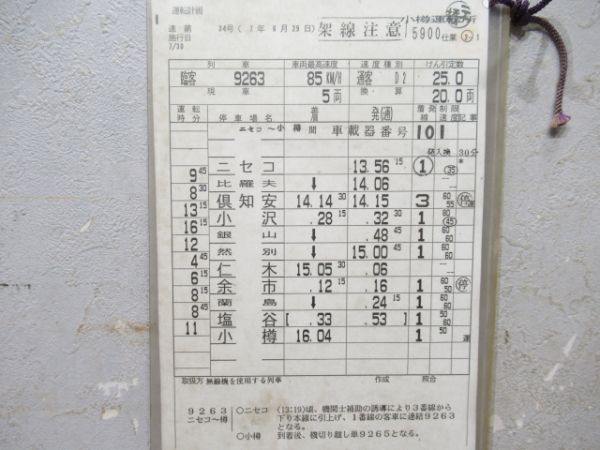 運転計画
達 第 34号 ( 7年 6月29日) 架線注意 小樽運転所
施行日 5900 仕業 1
7/30
列車 車両最高速度 速度種別 けん引定数
臨客 9263 85 KM/H 通客 D2 25.0
現車 換算
5両 20.0両
運転時分 停車場名 着 発(通) 着発線 制限速度 記事
ニセコ~小樽間 車載器番号 101
30分
ニセコ 13.56 15 1 35
9 45
比羅夫 ↓ 14.06
8 30
倶知安 14.14 30 14.15 3 60 55 停
13 15
小沢 .28 15 .32 30 1 80 45
16 15
銀山 ↓ .48 45 1 60 60
12
然別 ↓ 15.00 45 1 60 60
4 45
仁木 15.05 30 .06
6 15
余市 .12 15 .16 1 60 50 停
8 15
蘭島 ↓ .24 15 1 60 60
8 45
塩谷 [ .33 .53 ] 1 60 60
11
小樽 16.04 1 50 運
取扱方 無線機を使用する列車 作成 照合
9263 ○ニセコ (13:19)頃、機関士補助の誘導により3番線から
ニセコ~樽 下り本線に引上げ、1番線の客車に連結9263
となる。
○小樽 到着後、機切り離し単9265となる。